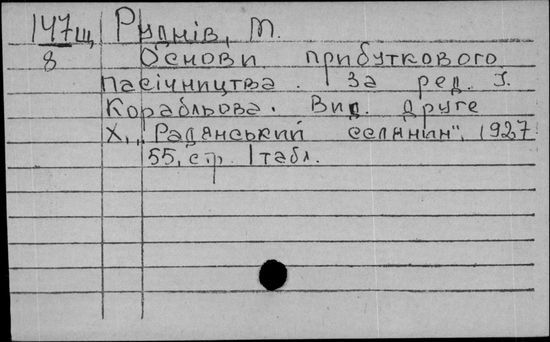 147щ Руднів, М.
8 Основи прибуткового
пасічництва. За ред. І.
Корабльова. Вид. друге
Х., "Радянський селянин", 1927
55, стр. 1 табл.